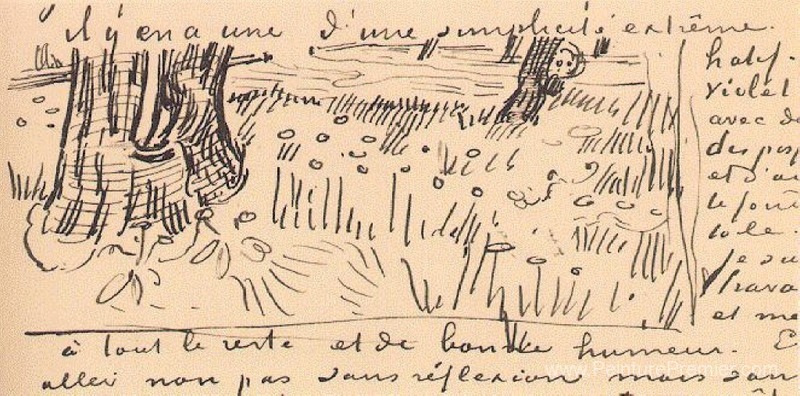 il y en a une d'une simplicité extrême.
violet
avec de
et d'au
le fon
je su
trava
et me
à tout le reste et de bonne humeur. E
aller non pas sans réflexion mais san
www.PeinturePremier.com